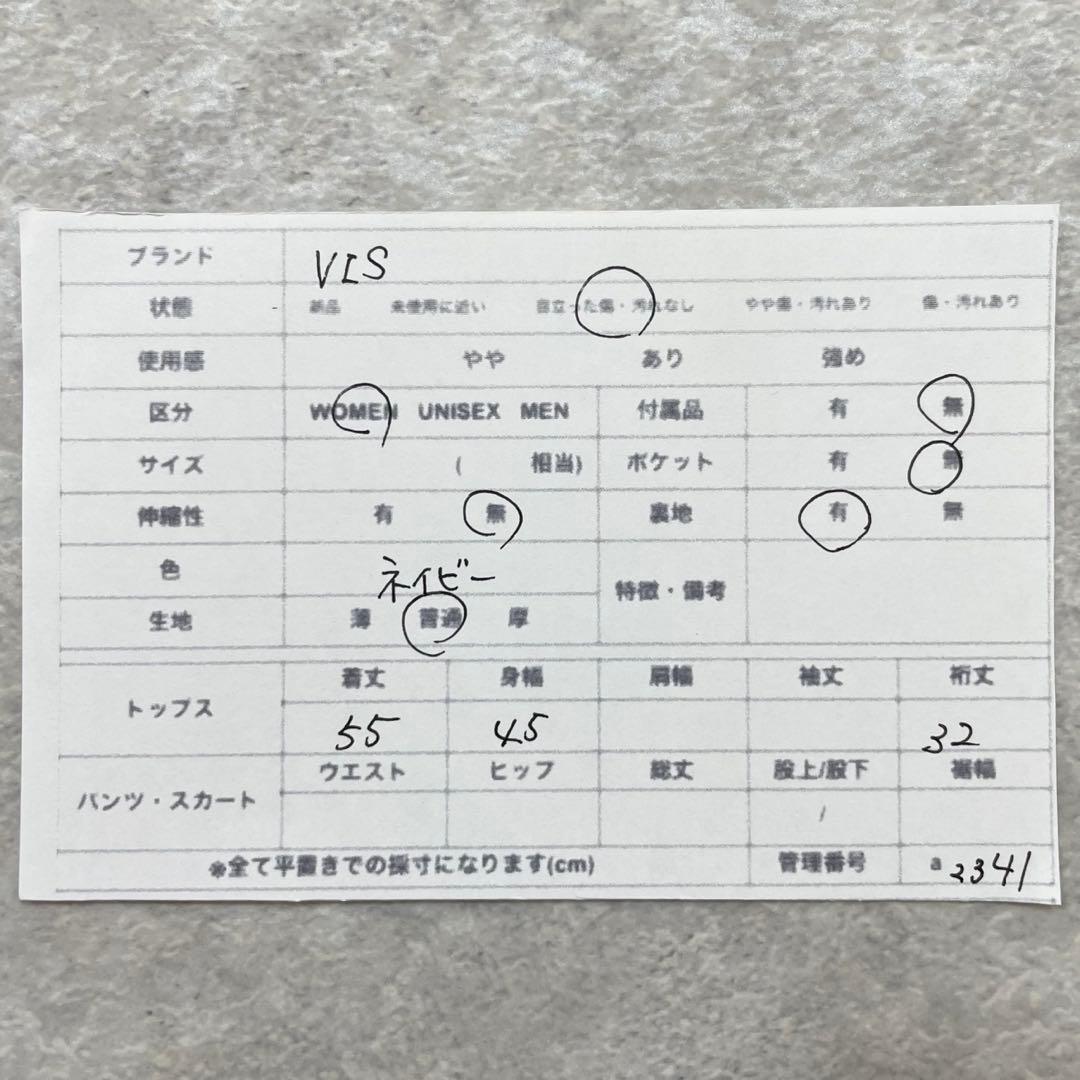 ブランド VIS
状態 新品 未使用に近い 目立った傷・汚れなし やや傷・汚れあり 傷・汚れあり
使用感 やや あり 強め
区分 WOMEN UNISEX MEN 付属品 有 無
サイズ ( 相当) ポケット 有 無
伸縮性 有 無 裏地 有 無
色 ネイビー 特徴・備考
生地 薄 普通 厚
トップス 着丈 身幅 肩幅 袖丈 裄丈
55 45 32
パンツ・スカート ウエスト ヒップ 総丈 股上/股下 裾幅
/
※全て平置きでの採寸になります(cm) 管理番号 a 2341